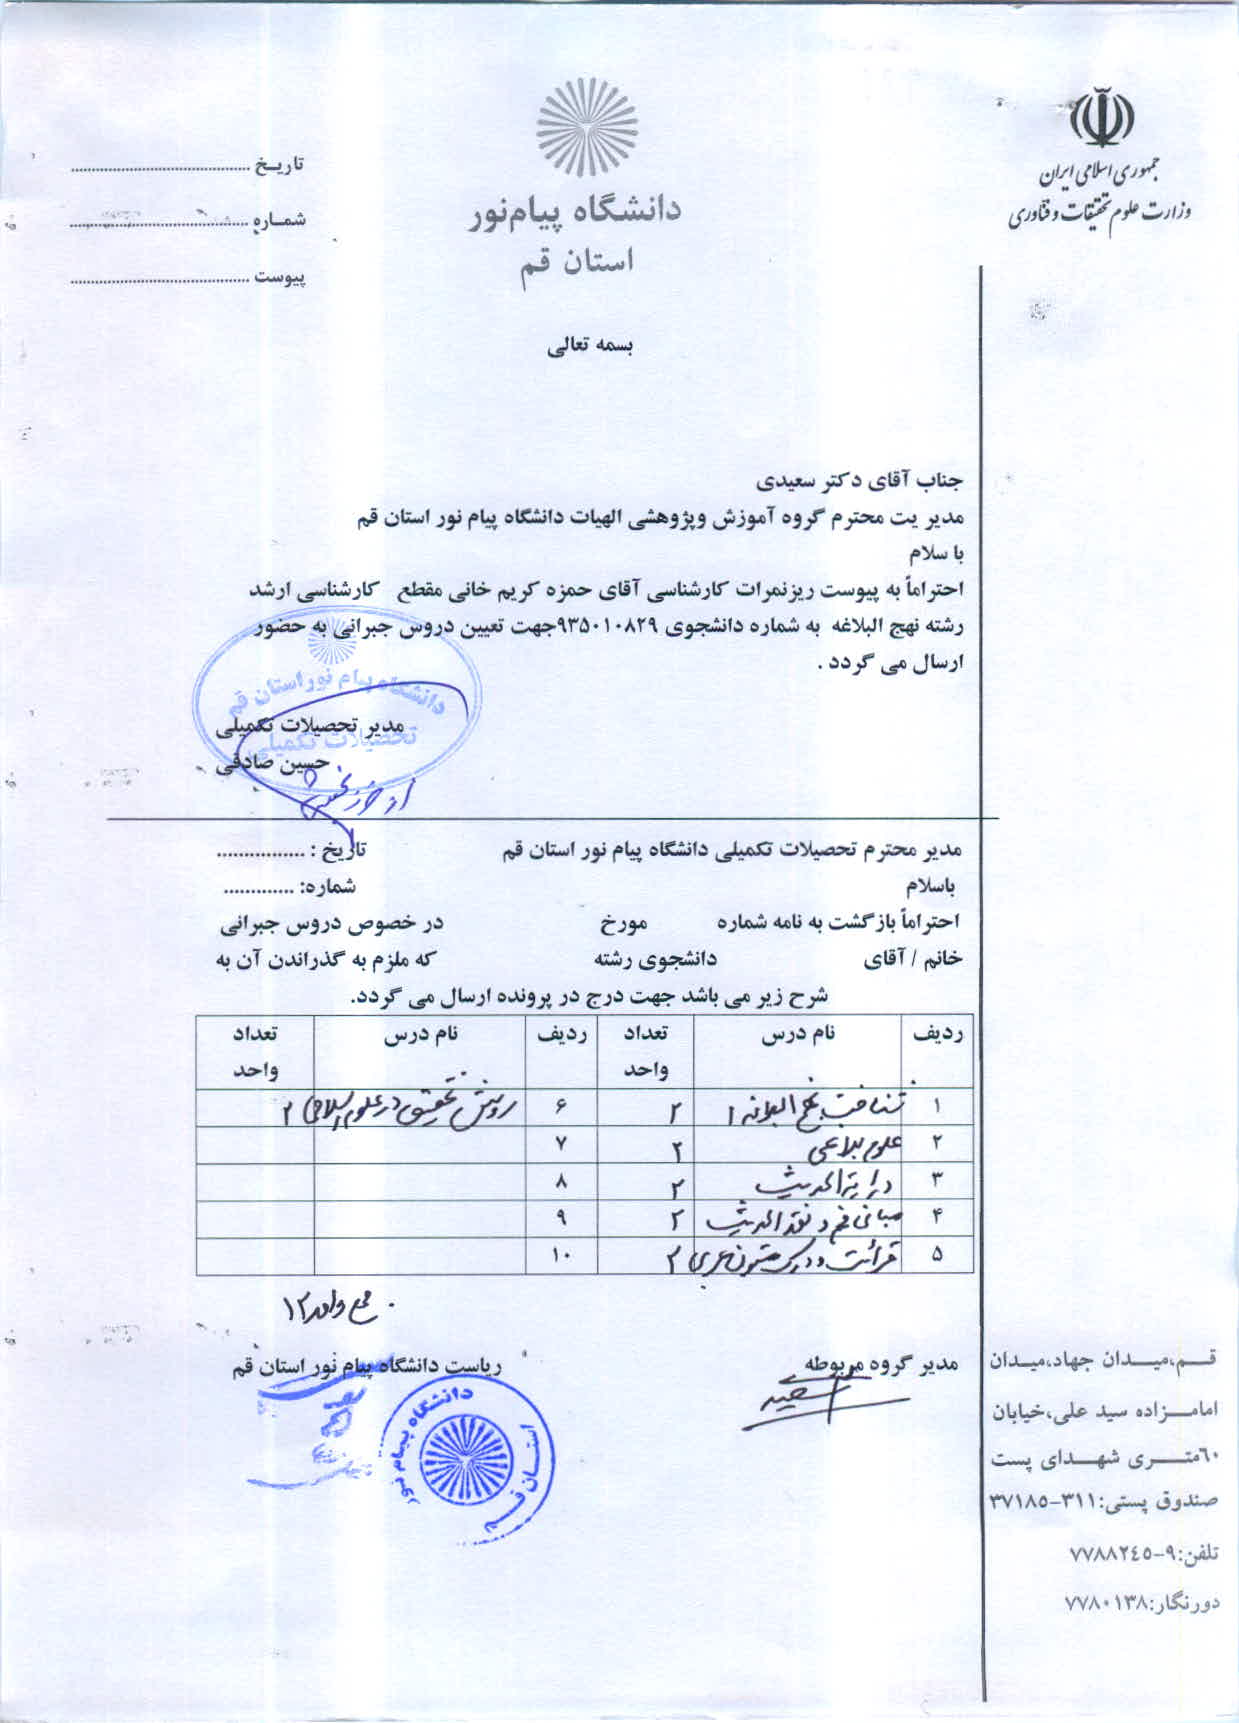 جمهوری اسلامی ایران
وزارت علوم تحقیقات و فناوری
دانشگاه پیام‌نور
استان قم
تاریخ ........................................
شماره ........................................
پیوست ........................................
بسمه تعالی
جناب آقای دکتر سعیدی
مدیر یت محترم گروه آموزش وپژوهشی الهیات دانشگاه پیام نور استان قم
با سلام
احتراماً به پیوست ریزنمرات کارشناسی آقای حمزه کریم خانی مقطع کارشناسی ارشد
رشته نهج البلاغه به شماره دانشجوی ۹۳۵۰۱۰۸۲۹جهت تعیین دروس جبرانی به حضور
ارسال می گردد .
دانشگاه پیام نور استان قم
تحصیلات تکمیلی
مدیر تحصیلات تکمیلی
حسین صادقی
مدیر محترم تحصیلات تکمیلی دانشگاه پیام نور استان قم تاریخ : ................
باسلام شماره: .............
احتراماً بازگشت به نامه شماره مورخ در خصوص دروس جبرانی
خانم / آقای دانشجوی رشته که ملزم به گذراندن آن به
شرح زیر می باشد جهت درج در پرونده ارسال می گردد.
ردیف نام درس تعداد واحد ردیف نام درس تعداد واحد
۱ شناخت نهج البلاغه ۱ ۲ ۶ روش تحقیق در علوم اسلامی ۲
۲ علوم بلاغی ۲ ۷
۳ درایة الحدیث ۲ ۸
۴ مبانی فهم و نقد الحدیث ۲ ۹
۵ قرائت و درک متون عربی ۲ ۱۰
جمع واحد ۱۲
مدیر گروه مربوطه ریاست دانشگاه پیام نور استان قم
دانشگاه پیام نور
استان قم
قم،میدان جهاد،میدان
امامزاده سید علی،خیابان
۶۰متری شهدای پست
صندوق پستی:۳۱۱-۳۷۱۸۵
تلفن:۹-۷۷۸۸۲۴۵
دورنگار:۷۷۸۰۱۳۸